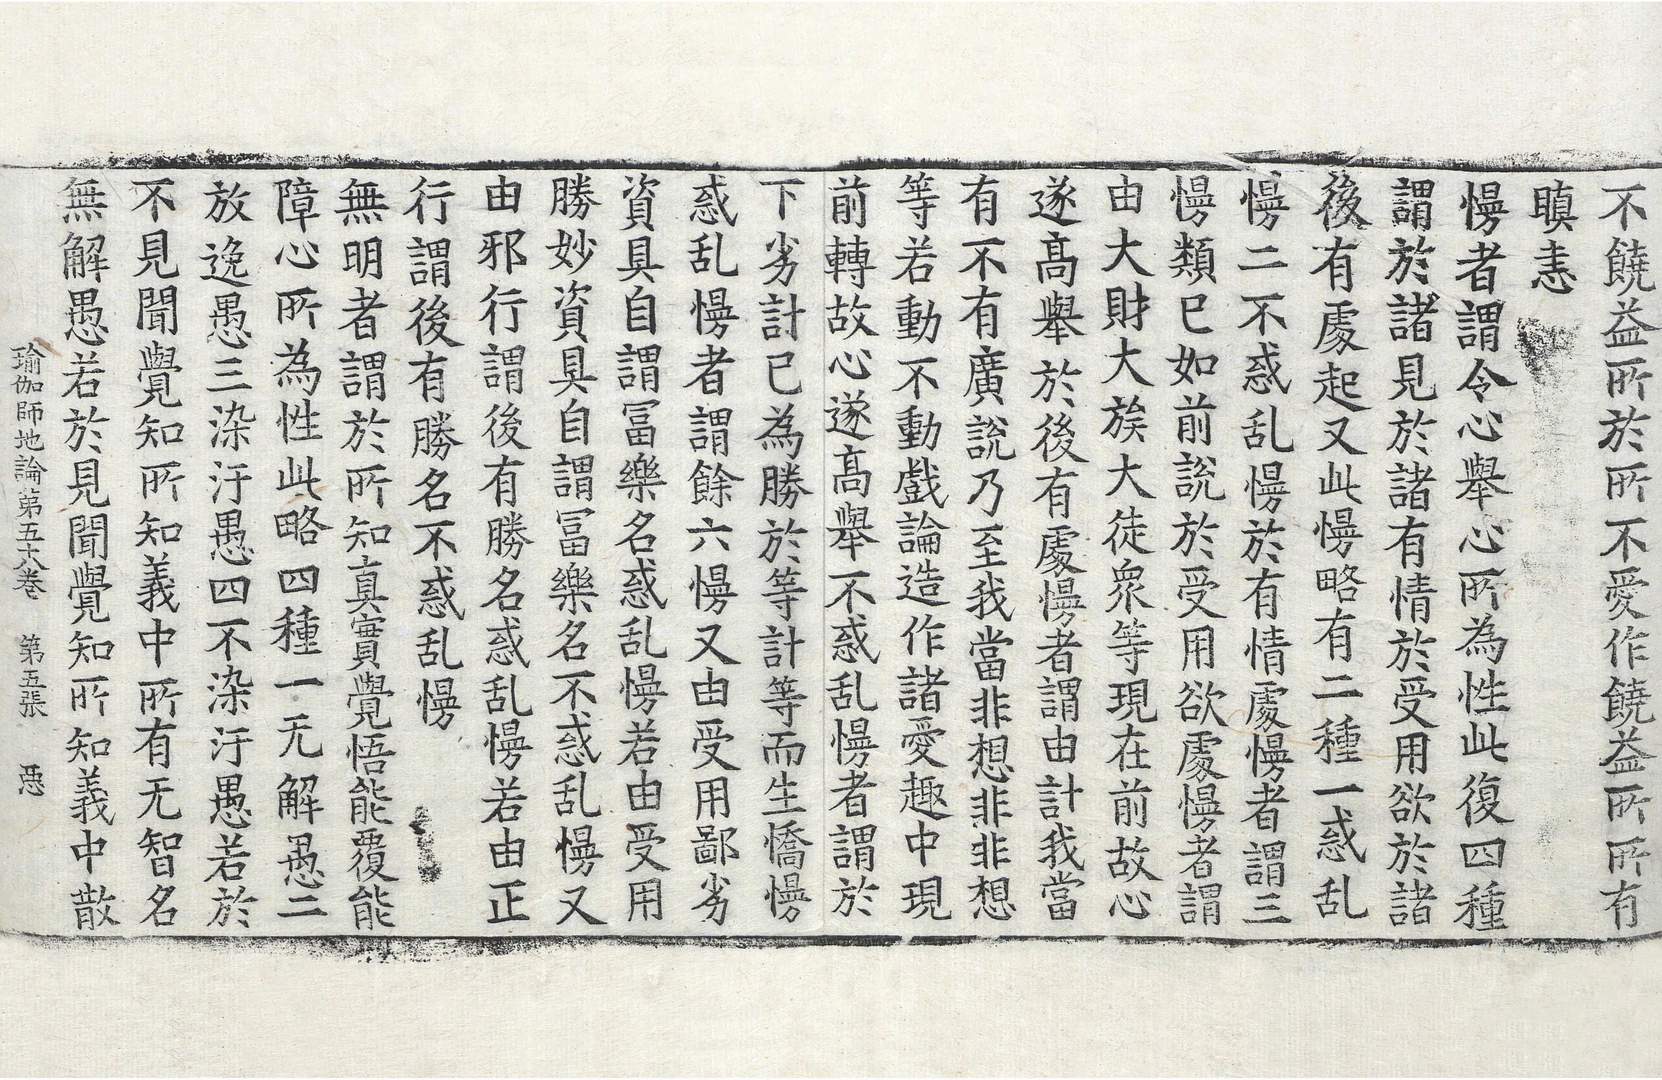 不饒益所於所不愛作饒益所所有
瞋恚
慢者謂令心舉心所為性此復四種
謂於諸見於諸有情於受用欲於諸
後有處起又此慢略有二種一惑乱
慢二不惑乱慢於有情處慢者謂三
慢類已如前說於受用欲處慢者謂
由大財大族大徒衆等現在前故心
遂髙舉於後有處慢者謂由計我當
有不有廣說乃至我當非想非非想
等若動不動戲論造作諸愛趣中現
前轉故心遂髙舉不惑乱慢者謂於
下劣計已為勝於等計等而生憍慢
惑乱慢者謂餘六慢又由受用鄙劣
資具自謂冨樂名惑乱慢若由受用
勝妙資具自謂冨樂名不惑乱慢又
由邪行謂後有勝名惑乱慢若由正
行謂後有勝名不惑乱慢
無明者謂於所知真實覺悟能覆能
障心所為性此略四種一无解愚二
放逸愚三染汙愚四不染汙愚若於
不見聞覺知所知義中所有无智名
無解愚若於見聞覺知所知義中散
瑜伽師地論第五六卷 第五張 惡